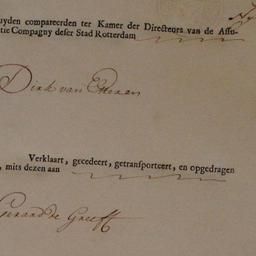 uyden compareerden ter Kamer der Directeurs van de Assu-
tie Compagny deser Stad Rotterdam
Dirk van
Verklaart, gecedeert, getransporteert, en opgedragen
, mits dezen aan
Gerard de Greeff